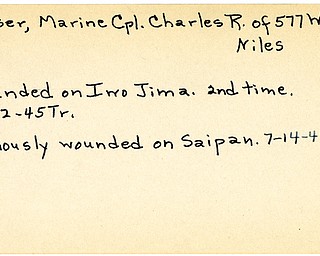 ser, Marine Cpl. Charles R. of 577 W
Niles
nded on Iwo Jima. 2nd time.
2-45 Tr.
ously wounded on Saipan. 7-14-4